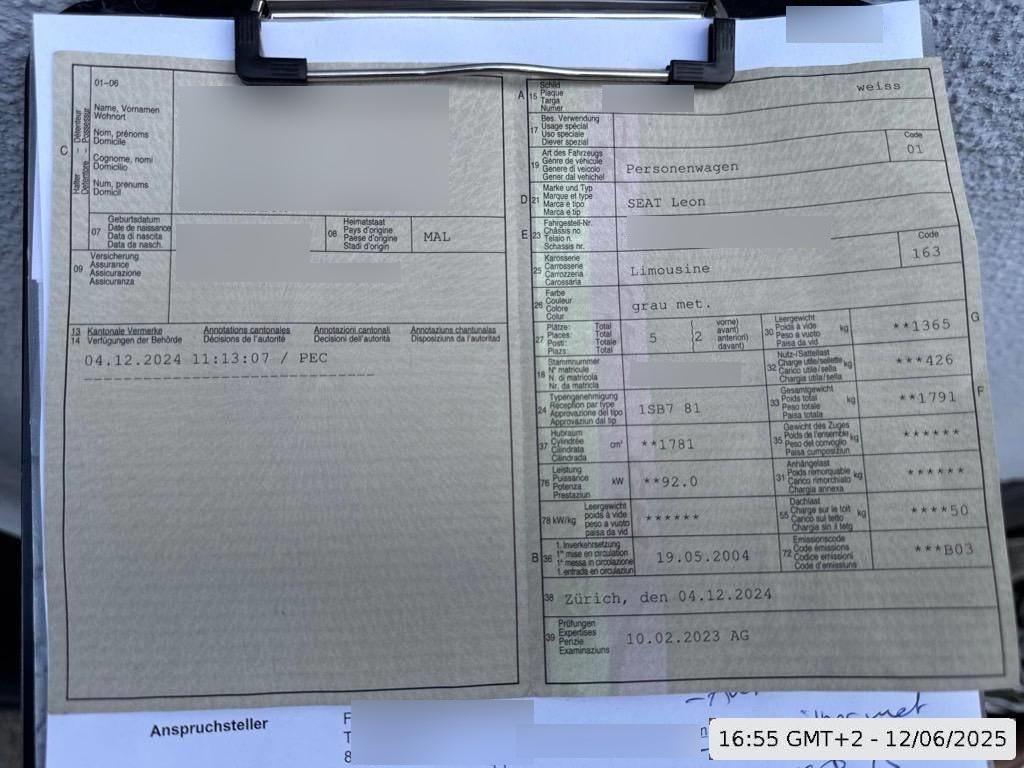 01-06
Halter - Détenteur
Detentore - Possessur
C
Name, Vornamen
Wohnort
Nom, prénoms
Domicile
Cognome, nomi
Domicilio
Num, prenums
Domicil
07
Geburtsdatum
Date de naissance
Data di nascita
Data da nasch.
08
Heimatstaat
Pays d'origine
Paese d'origine
Stadi d'origin
MAL
09
Versicherung
Assurance
Assicurazione
Assicuranza
13
14
Kantonale Vermerke
Verfügungen der Behörde
Annotations cantonales
Décisions de l'autorité
Annotazioni cantonali
Decisioni dell'autorità
Annotaziuns chantunalas
Disposiziuns da l'autoritad
04.12.2024 11:13:07 / PEC
A 15
Schild
Plaque
Targa
Numer
weiss
17
Bes. Verwendung
Usage spécial
Uso speciale
Diever spezial
19
Art des Fahrzeugs
Genre de véhicule
Genere di veicolo
Gener dal vehichel
Personenwagen
Code
01
D 21
Marke und Typ
Marque et type
Marca e tipo
Marca e tip
SEAT Leon
E 23
Fahrgestell-Nr.
Châssis no
Telaio n.
Schassis nr.
25
Karosserie
Carrosserie
Carrozzeria
Carossaria
Limousine
Code
163
26
Farbe
Couleur
Colore
Colur
grau met.
27
Plätze: Total
Places: Total
Posti: Totale
Plazs: Total
5
2
vorne)
avant)
anteriori)
davant)
30
Leergewicht
Poids à vide
Peso a vuoto
Paisa da vid
kg
**1365
G
18
Stammnummer
N° matricule
N. di matricola
Nr. da matricla
32
Nutz-/Sattellast
Charge utile/sellette
Carico utile/sella
Chargia utila/sella
kg
***426
24
Typengenehmigung
Réception par type
Approvazione del tipo
Approvaziun dal tip
1SB7 81
33
Gesamtgewicht
Poids total
Peso totale
Paisa totala
kg
**1791
F
37
Hubraum
Cylindrée
Cilindrata
Cilindrada
cm³
**1781
35
Gewicht des Zuges
Poids de l'ensemble
Peso del convoglio
Paisa cumposiziun
kg
******
76
Leistung
Puissance
Potenza
Prestaziun
kW
**92.0
31
Anhängelast
Poids remorquable
Carico rimorchiato
Chargia annexa
kg
******
78 kW/kg
Leergewicht
poids à vide
peso a vuoto
paisa da vid
******
55
Dachlast
Charge sur le toit
Carico sul tetto
Chargia sin il tetg
kg
****50
B 36
1. Inverkehrsetzung
1re mise en circulation
1a messa in circolazione
1. entrada en circulaziun
19.05.2004
72
Emissionscode
Code émissions
Codice emissioni
Code d'emissiuns
***B03
38
Zürich, den 04.12.2024
39
Prüfungen
Expertises
Perizie
Examinaziuns
10.02.2023 AG
Anspruchsteller
F
T
8
16:55 GMT+2 - 12/06/2025